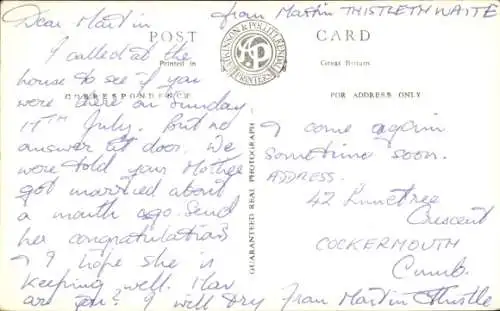 Dear Martin
from Martin THISTLETHWAITE
POST CARD
Printed in Great Britain
ATKINSON & POLLITT KENDAL
AP
PRINTERS
CORRESPONDENCE
FOR ADDRESS ONLY
GUARANTEED REAL PHOTOGRAPH
I called at the
house to see if you
were there on Sunday
17TH July. But no
answer at door. We
were told your Mother
got married about
a month ago. Send
her congratulations
I hope she is
keeping well. How
are you? I will try
& come again
sometime soon.
ADDRESS.
42 Limetree
Crescent
COCKERMOUTH
Cumb.
from Martin Thistle